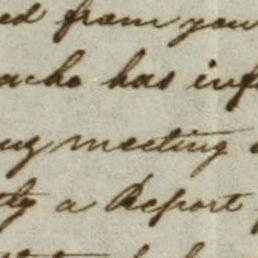 ed from you
acho has inf
ng meeting
ty a Report